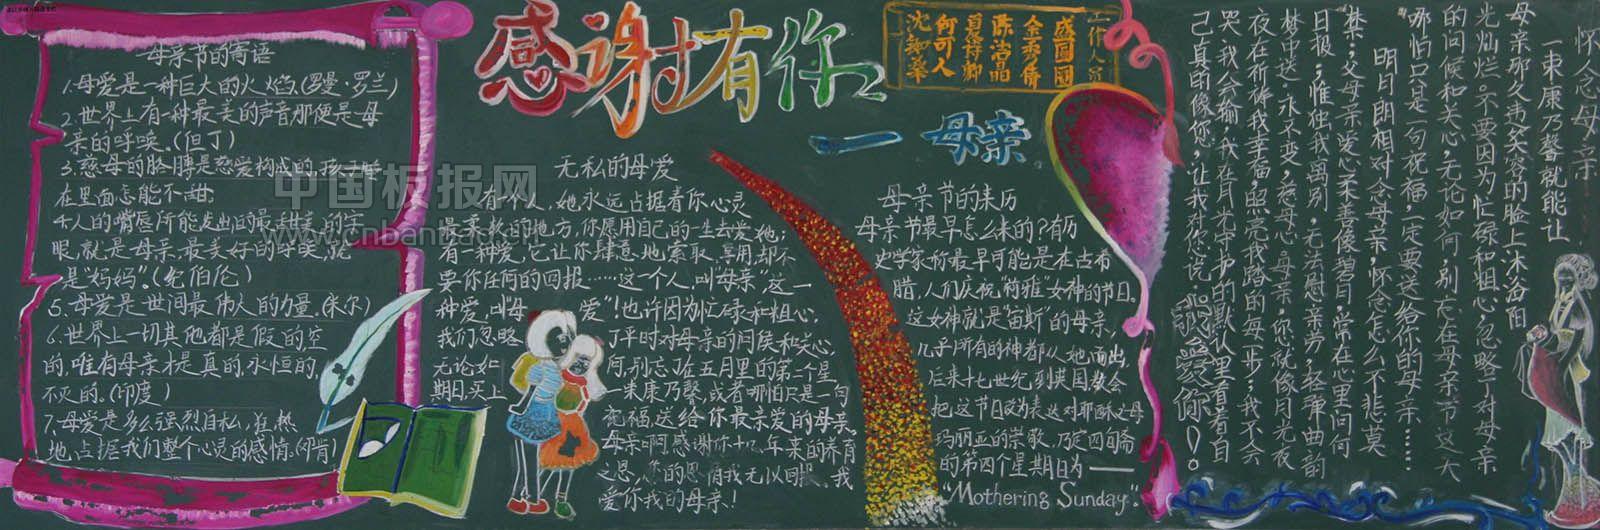 感谢有你
一 母亲
工作人员
盛圆圆
金秀倩
陈洁晶
夏诗卉
何可人
母亲节的寄语
1.母爱是一种巨大的火焰。(罗曼·罗兰)
2.世界上有一种最美的声音那便是母
亲的呼唤。(但丁)
3.慈母的胳膊是慈爱构成的,孩子睡
在里面怎能不甜。
4.人的嘴唇所能发出的最甜美的字
眼,就是母亲,最美好的呼唤,就
是"妈妈"。(纪伯伦)
5.母爱是世间最伟大的力量。(米尔)
6.世界上一切其他都是假的,空
的,唯有母亲才是真的,永恒的,
不灭的。(印度)
7.母爱是多么强烈自私,狂热
地占据我们整个心灵的感情。
无私的母爱
有个人,她永远占据着你心灵
最柔软的地方,你愿用自己的一生去爱她;
有一种爱,它让你肆意地索取、享用,却不
要你任何的回报……这一个人,叫"母亲"这一
种爱,叫"母爱"!也许因为忙碌和粗心,
我们忽略了平时对母亲的问候和关心,
无论如何,别忘了在五月里的第二个星
期日,买上一束康乃馨,或者哪怕只是一句
祝福,送给你最亲爱的母亲。
母亲啊,感谢你十几年来的养育
之恩,您的恩情我无以回报,我
爱你我的母亲!
母亲节的来历
母亲节最早怎么来的?有历
史学家称最早可能是在古希
腊,人们庆祝"符雅"女神的节日。
这女神就是"宙斯"的母亲,
几乎所有的神都从她而出,
后来十七世纪到英国,教会
把这节日改为表达对耶酥之母
玛丽亚的崇敬,乃定四旬斋
的第四个星期日为——
"Mothering Sunday".
怀念母亲
一束康乃馨就能让
母亲那久违笑容的脸上沐浴阳
光灿烂。不要因为忙碌和粗心,忽略了对母亲
的问候和关心,无论如何,别忘在母亲节这天
"哪怕只是一句祝福,一定要送给你的母亲……
明月朗相对,念母亲,怀念怎么不悲莫
禁;父母亲爱心,柔善像碧月,常在心里问何
日报,惟独我离别,无法慰亲旁,轻弹曲韵
梦中送。永不变,慈母心,母亲,你就像月光夜
夜在祈祷我幸福,照亮我踏的每一步;我不会
哭,我会输,我在月光守护的默认里看着自
己真的像你,让我对你说:我爱你!
中国板报网
www.cnbanbao.cn